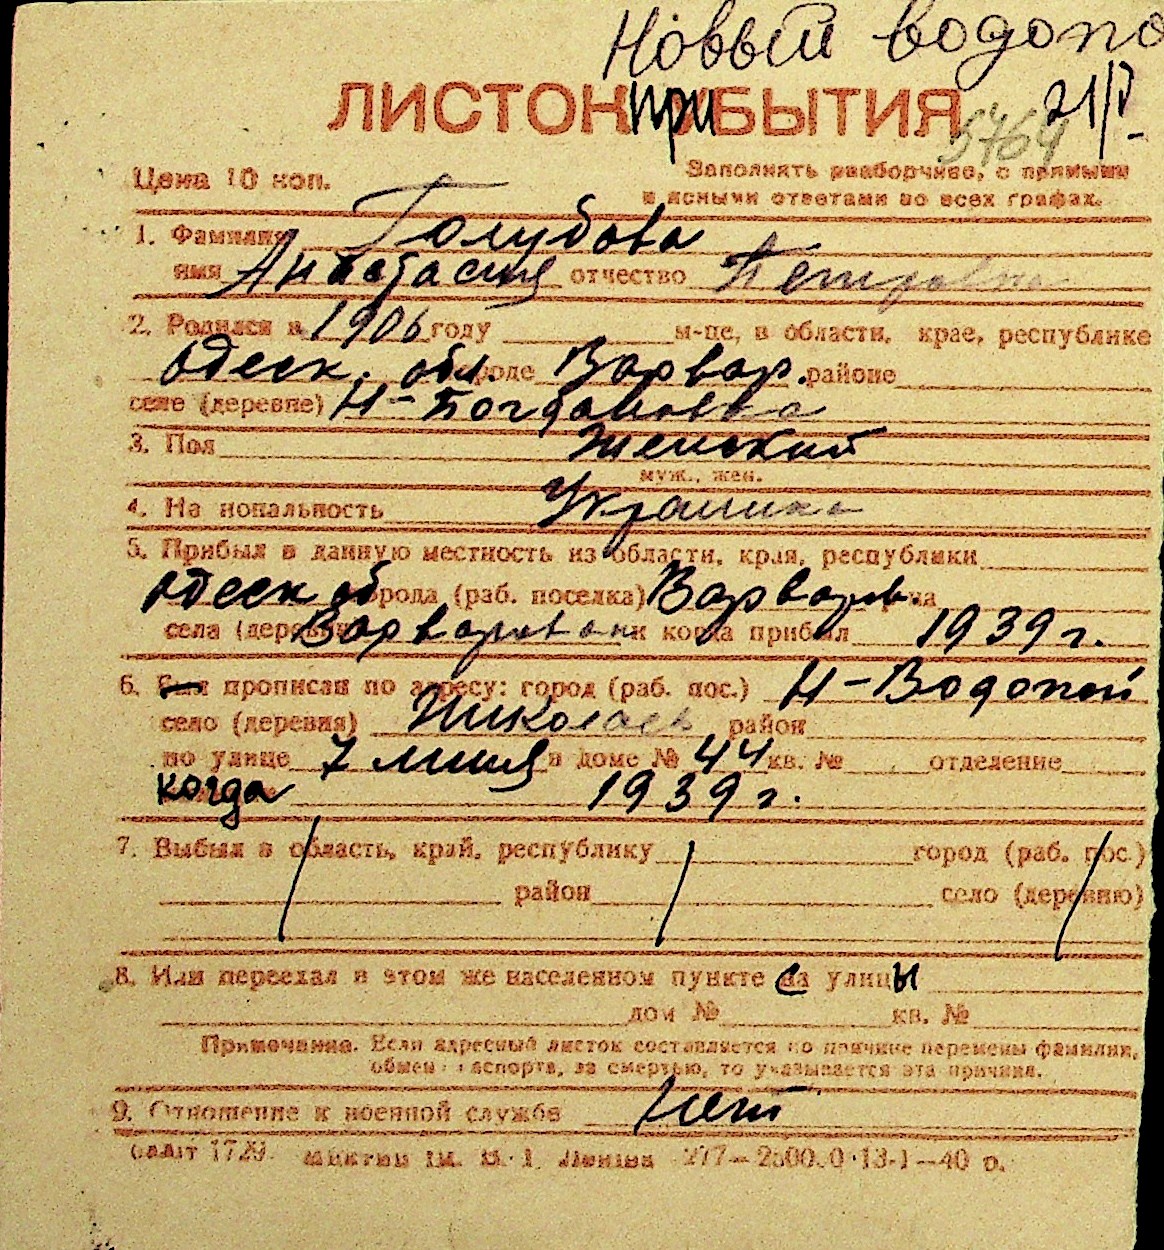 Новый водопо
ЛИСТОК при БЫТИЯ 21/V
5764
Цена 10 коп. Заполнять разборчиво, с прямыми
и ясными ответами во всех графах.
1. Фамилия Голубова
имя Анастасия отчество Петровна
2. Родился в 1906 году м-це, в области, крае, республике
Одесск. обл. городе Варвар. районе
селе (деревне) Н-Богдановка
3. Пол Женский
муж., жен.
4. Национальность Украинка
5. Прибыл в данную местность из области, края, республики
Одесск об города (раб. поселка) Варваров. на
села (деревни) Варваровки и когда прибыл 1939 г.
6. Был прописан по адресу: город (раб. пос.) Н-Водопой
село (деревня) Николаев район
по улице 7 линия в доме № 44 кв. № отделение
когда 1939 г.
7. Выбыл в область, край, республику город (раб. пос.)
район село (деревню)
8. Или переехал в этом же населенном пункте с улицы
дом № кв. №
Примечание. Если адресный листок составляется по причине перемены фамилии,
обмен паспорта, за смертью, то указывается эта причина.
9. Отношение к военной службе нет
1729. Ленина 277—25000 13-1—40 р.